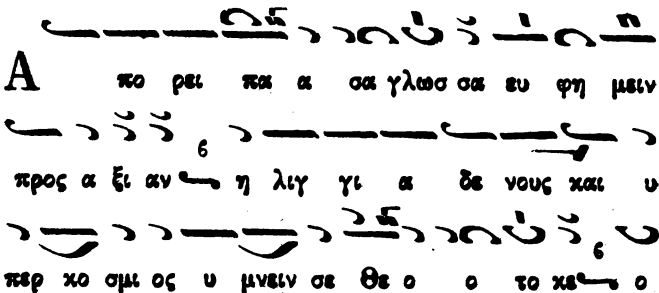 Α πο ρει πα α σα γλωσ σα ευ φη μειν
προς α ξι αν η λιγ γι α δε νους και υ
περ κο σμι ος υ μνειν σε Θε ο ο το κε ο